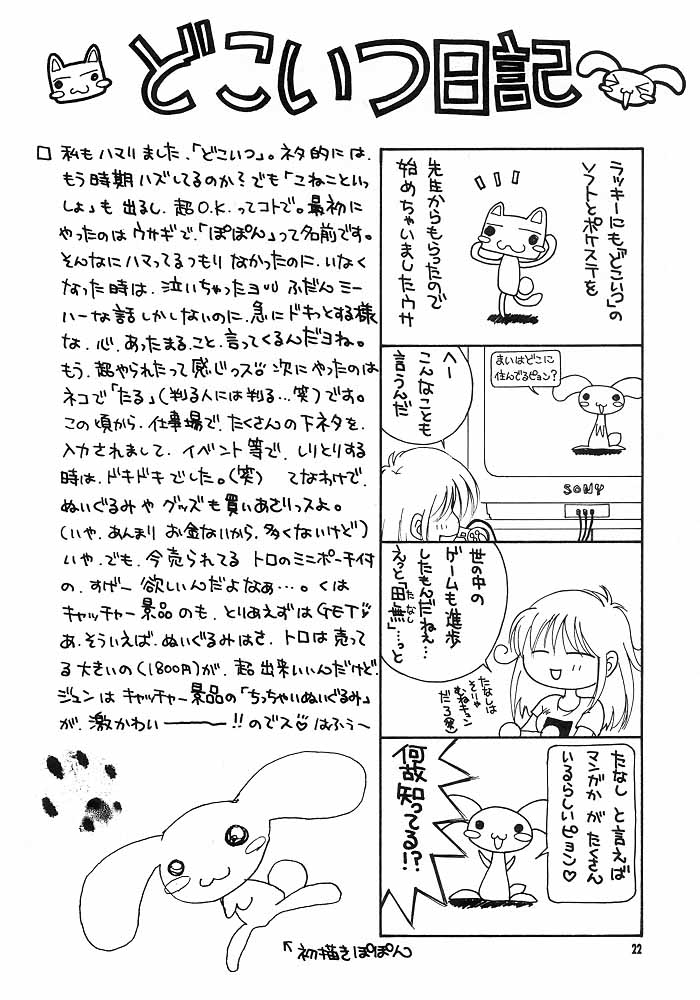 どこいつ日記
□ 私もハマりました、「どこいつ」。ネタ的には、
もう時期ハズしてるのか?でも「こねこといっ
しょ」も出るし、超O.K.ってコトで。最初に
やったのはウサギで、「ぽぽん」って名前です。
そんなにハマってるつもりなかったのに、いなく
なった時は、泣いちゃったヨ ふだんミー
ハーな話しかしないのに、急にドキっとする様
な、心、あったまること、言ってくるんだヨね。
もう、超やられたって感じっス 次にやったのは
ネコで「たる」(判る人には判る…笑)です。
この頃から、仕事場で、たくさんの下ネタを、
入力されまして、イベント等で、しりとりする
時は、ドキドキでした。(笑) てなわけで、
ぬいぐるみやグッズも買いあさりっスよ。
(いや、あんまりお金ないから、多くないけど)
いや、でも、今売られてるトロのミニポーチ付
の、すげー欲しいんだよなぁ…。くは
キャッチャー景品のも、とりあえずはGET♡
あ、そういえば、ぬいぐるみはさ、トロは売っ
てる大きいの(1800円)が、超出来いいんだけど、
ジュンはキャッチャー景品の「ちっちゃいぬいぐるみ」
が、激かわいーーー!!のでス♡はふぅ〜
ラッキーにも「どこいつ」の
ソフトとポケステを
先生からもらったので
始めちゃいましたウサ
まいはどこに
住んでるピョン?
へー
こんなことも
言うんだ
SONY
世の中の
ゲームも進歩
したもんだねぇ…
えっと「田無」…っと
たなし
たなしは
そりゃ
むねキュン
だろ(笑)
たなし と言えば
マンガか が たくさん
いるらしいピョン♡
何故
知ってる!?
↖初描きぽぽん
22